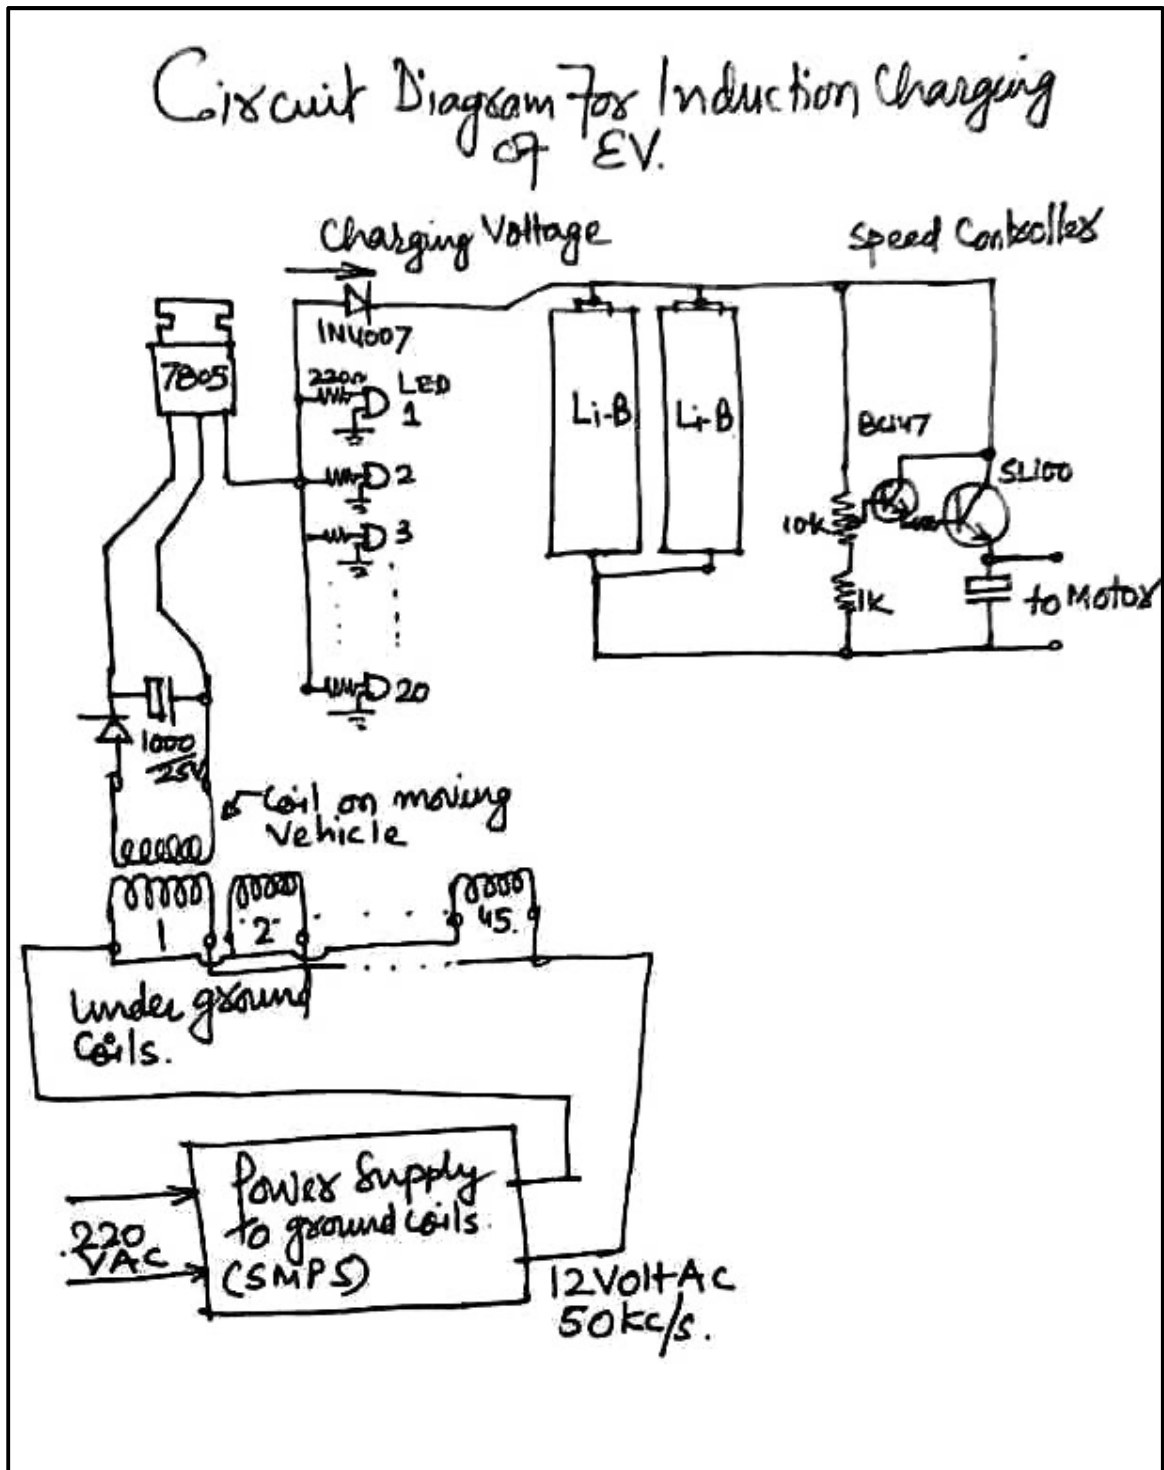 Circuit Diagram For Induction Charging
of EV.
Charging Voltage
Speed Controller
1N4007
7805
220Ω
LED
1
2
3
20
Li-B
Li-B
BC147
SL100
10K
1K
to Motor
1000
/25V
Coil on moving
Vehicle
1
2
45.
Under ground
Coils.
Power Supply
to ground coils.
(SMPS)
220
VAC
12 Volt AC
50 kc/s.